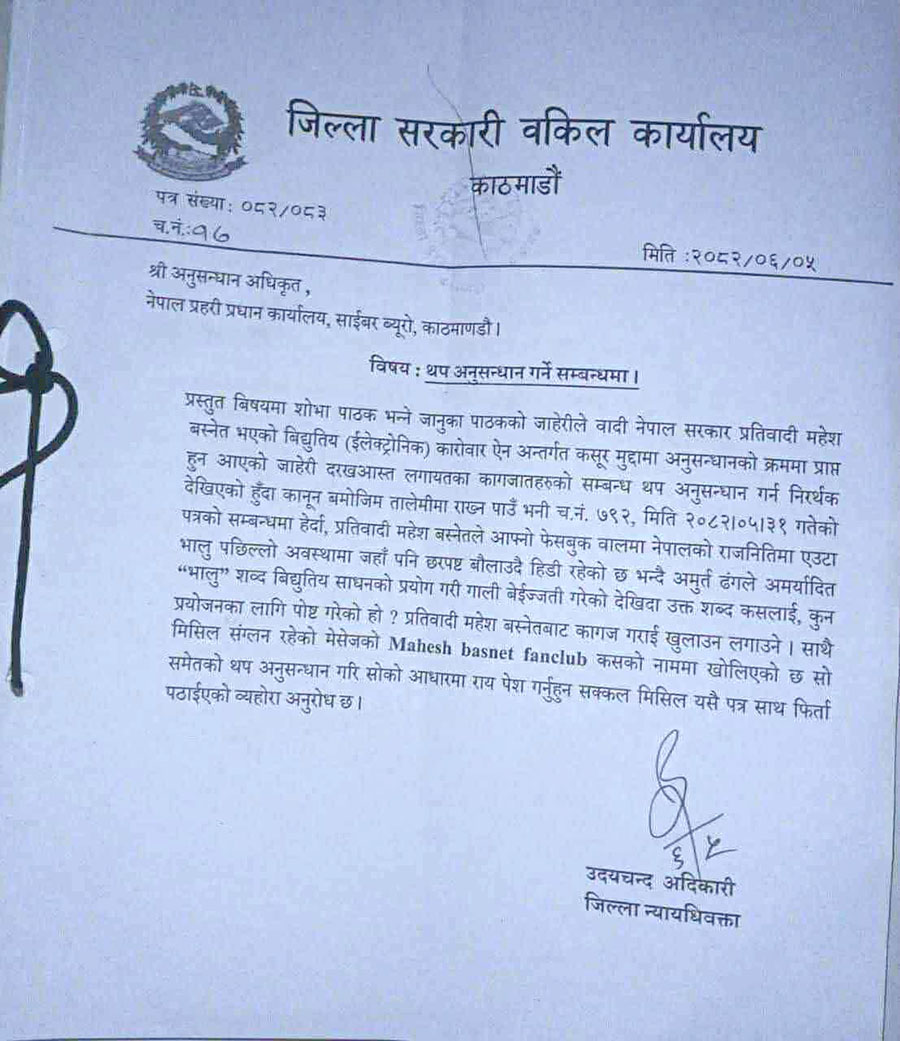 जिल्ला सरकारी वकिल कार्यालय
काठमाडौं
पत्र संख्या: ०८२/०८३
च.नं.:१७
मिति :२०८२/०६/०५
श्री अनुसन्धान अधिकृत,
नेपाल प्रहरी प्रधान कार्यालय, साईबर ब्यूरो, काठमाणडौ।
विषय : थप अनुसन्धान गर्ने सम्बन्धमा।
प्रस्तुत बिषयमा शोभा पाठक भन्ने जानुका पाठकको जाहेरीले वादी नेपाल सरकार प्रतिवादी महेश
बस्नेत भएको बिद्युतिय (ईलेक्ट्रोनिक) कारोवार ऐन अन्तर्गत कसूर मुद्दामा अनुसन्धानको क्रममा प्राप्त
हुन आएको जाहेरी दरखआस्त लगायतका कागजातहरुको सम्बन्ध थप अनुसन्धान गर्न निरर्थक
देखिएको हुँदा कानून बमोजिम तालेमीमा राख्न पाउँ भनी च.नं. ७९२, मिति २०८२।०५।३१ गतेको
पत्रको सम्बन्धमा हेर्दा, प्रतिवादी महेश बस्नेतले आफ्नो फेसबुक वालमा नेपालको राजनितिमा एउटा
भालु पछिल्लो अवस्थामा जहाँ पनि छरपष्ट बौलाउदै हिडी रहेको छ भन्दै अमुर्त ढंगले अमर्यादित
“भालु” शब्द बिद्युतिय साधनको प्रयोग गरी गाली बेईज्जती गरेको देखिदा उक्त शब्द कसलाई, कुन
प्रयोजनका लागि पोष्ट गरेको हो ? प्रतिवादी महेश बस्नेतबाट कागज गराई खुलाउन लगाउने। साथै
मिसिल संग्लन रहेको मेसेजको Mahesh basnet fanclub कसको नाममा खोलिएको छ सो
समेतको थप अनुसन्धान गरि सोको आधारमा राय पेश गर्नुहुन सक्कल मिसिल यसै पत्र साथ फिर्ता
पठाईएको व्यहोरा अनुरोध छ।
६/५
उदयचन्द अदिकारी
जिल्ला न्यायधिवक्ता